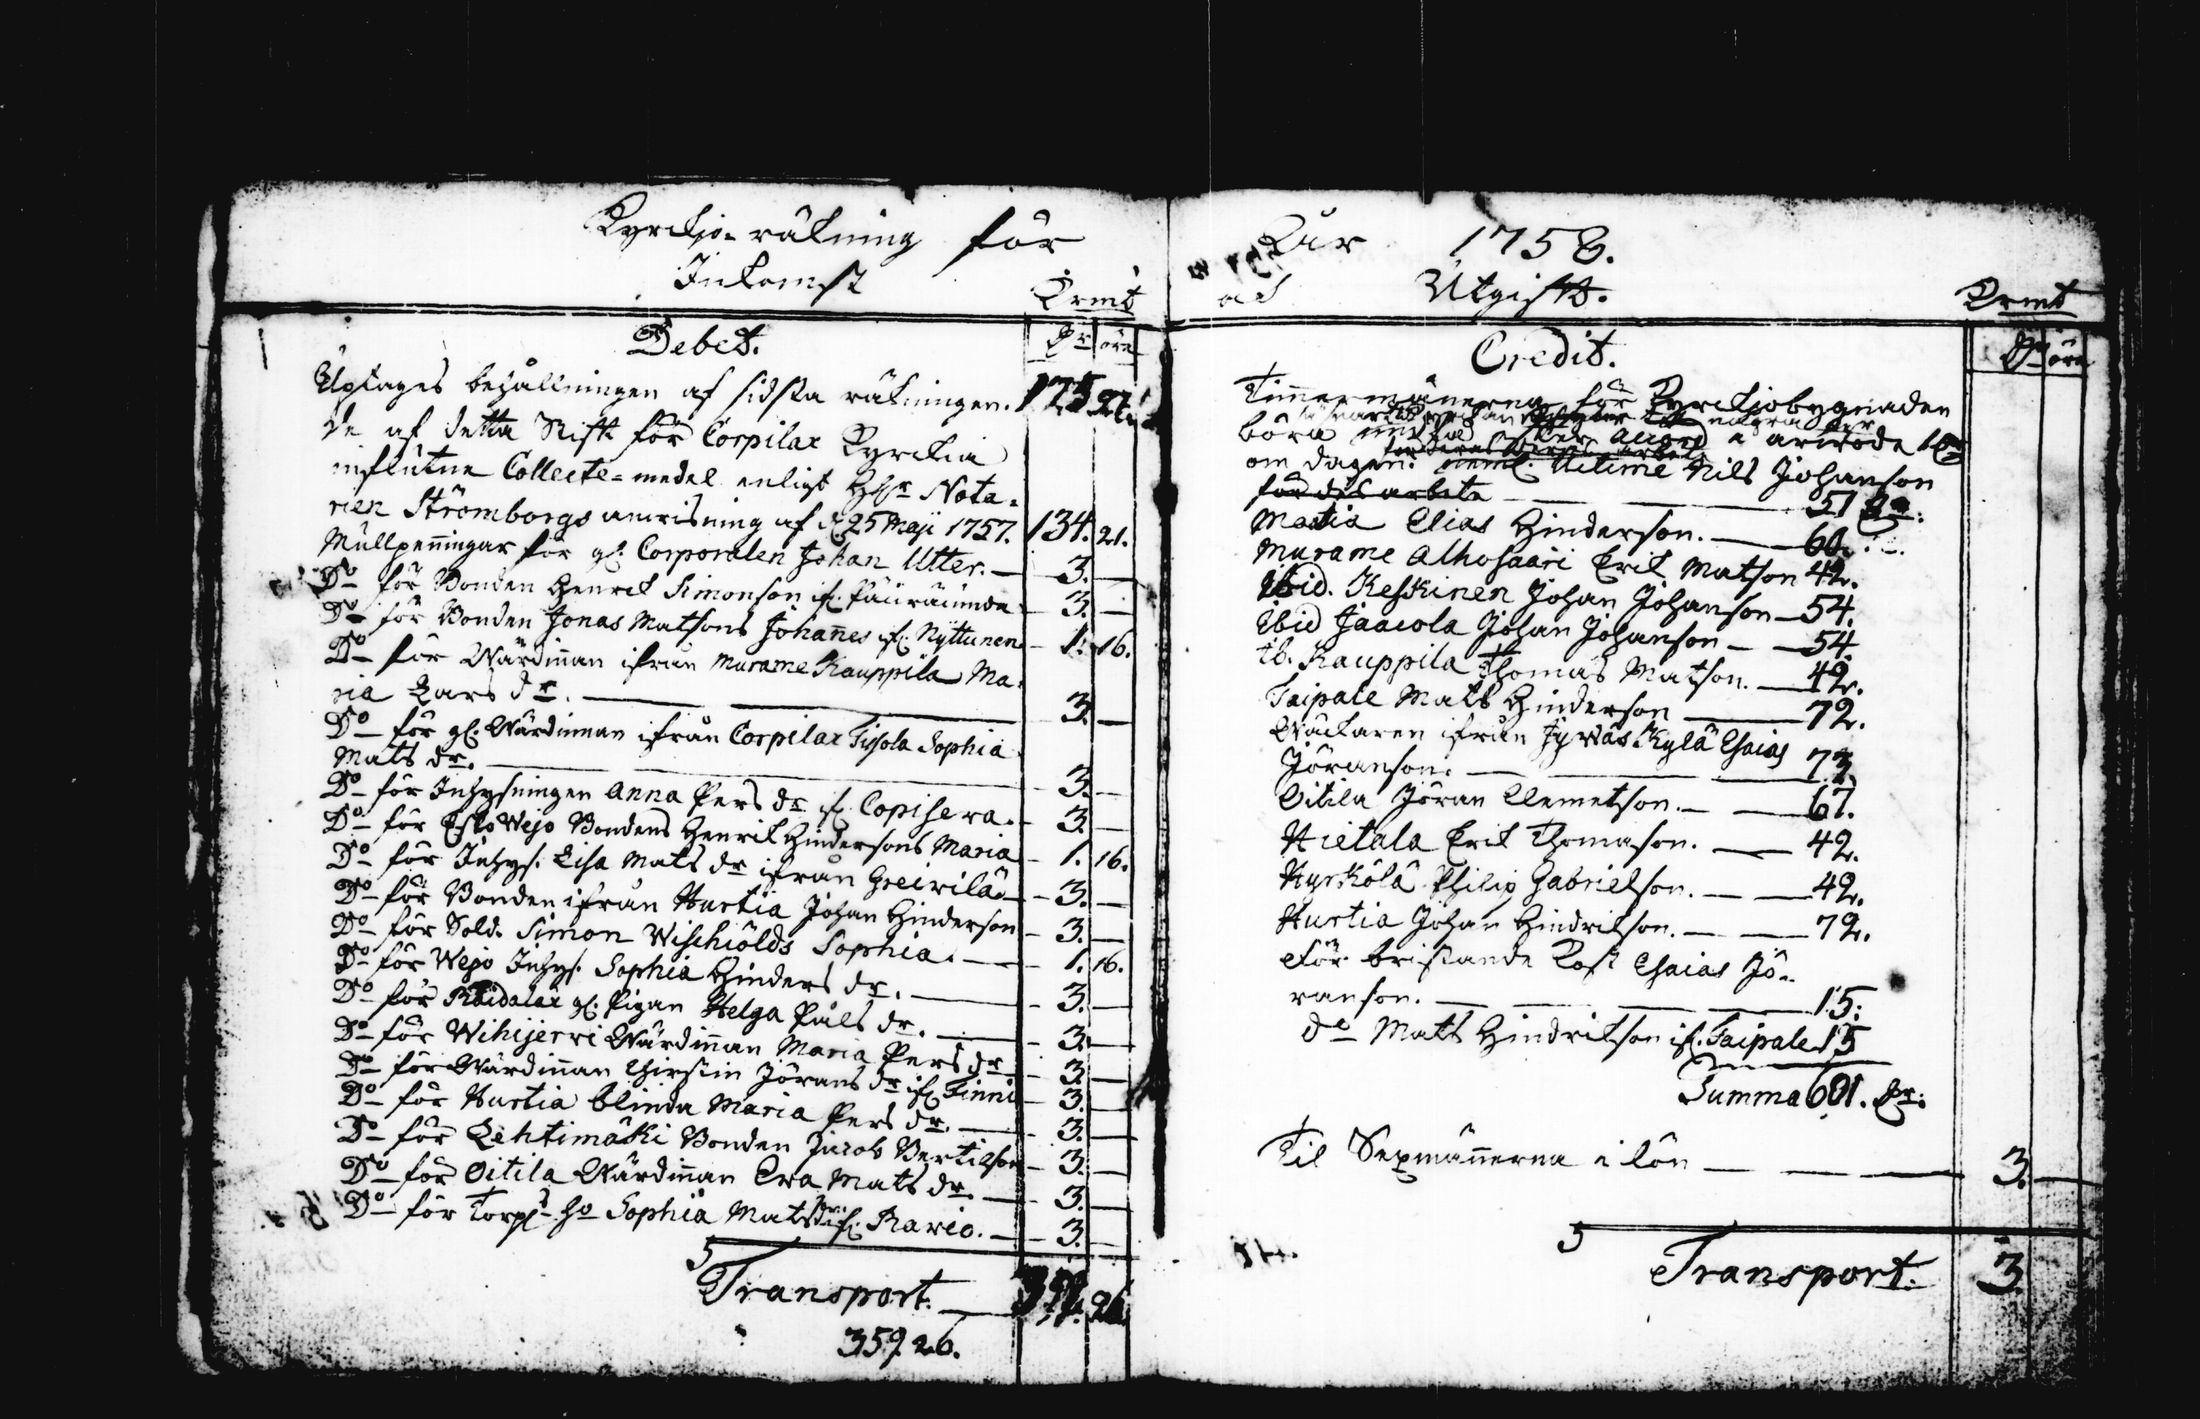 Kyrckjo-räkning för
Inkomst
Krmt
Debet.
Dr öre
Uptages behållningen af sidsta räkningen. 175
De af detta Stift för Corpilax Kyrckia
influtne Collecte-medel enligt Nota-
rien Strömborgs anvisning af d. 25 Maji 1757. 134. 21.
Mullpenningar för gl. Corporalen Johan Utter. — 3. —
Do för Bonden Henrik Simonson if. — 3. —
Do för Bonden Jonas Matsons Johannes if. Nyttunen — 1. 16.
Do för Wärdinnan ifrån Murame Kauppila Ma-
ria Lars dr. — 3. —
Do för gl. Wärdinnan ifrån Corpilax Tisola Sophia
Mats dr. — 3. —
Do för Inhysningen Anna Pers dr if. Copisera. — 3. —
Do för Wejo Bondens Henrik Hindersons Maria — 1. 16.
Do för Inhys. Lisa Mats dr ifrån — 3. —
Do för Bonden ifrån Hurtia Johan Hinderson — 3. —
Do för Sold. Simon Wischiölds Sophia. — 1. 16.
Do för Wejo Inhys. Sophia Hinders dr. — 3. —
Do för gl. Pigan Helga Påls dr. — 3. —
Do för Wihijerri Wärdinnan Maria Pers dr — 3. —
Do för Wärdinnan Chirstin Jörans dr if. Finni — 3. —
Do för Hurtia blinda Maria Pers dr. — 3. —
Do för Lehtimäki Bonden Jacob Bertilson — 3. —
Do för Oitila Wärdinnan Eva Mats dr. — 3. —
Do för Torp. Ho Sophia Mats dr if. Ravio. — 3. —
Transport. — 26
359 26.
År 1758.
Utgift.
Krmt
Credit.
Dr öre
Timmermännerna för Kyrckjobygnaden
böra arwode
om dagen. neml. Uitime Nils Johanson
för des arbete — 51 Dr:
Matia Elias Hinderson. — 60.
Murame Alhosaari Erik Matson 42.
Ibid. Keskinen Johan Johanson — 54.
Ibid Jaacola Johan Johanson — 54.
ib. Kauppila Thomas Matson. — 42.
Taipale Mats Hinderson — 72.
Wäcktaren ifrån Jyväs Kylä Esaias
Jöranson. — 73.
Oitila Jöran Clemetson. — 67.
Hietala Erik Thomason. — 42.
Hyrkölä Philip Gabrielson. — 42.
Hurtia Johan Hindrikson. — 72.
För bristande Kost Esaias Jö-
ranson. — 15.
do Mats Hindrikson if. Taipale 15
Summa 601. Dr:
Til Sexmännerna i lön — 3. —
Transport. 3